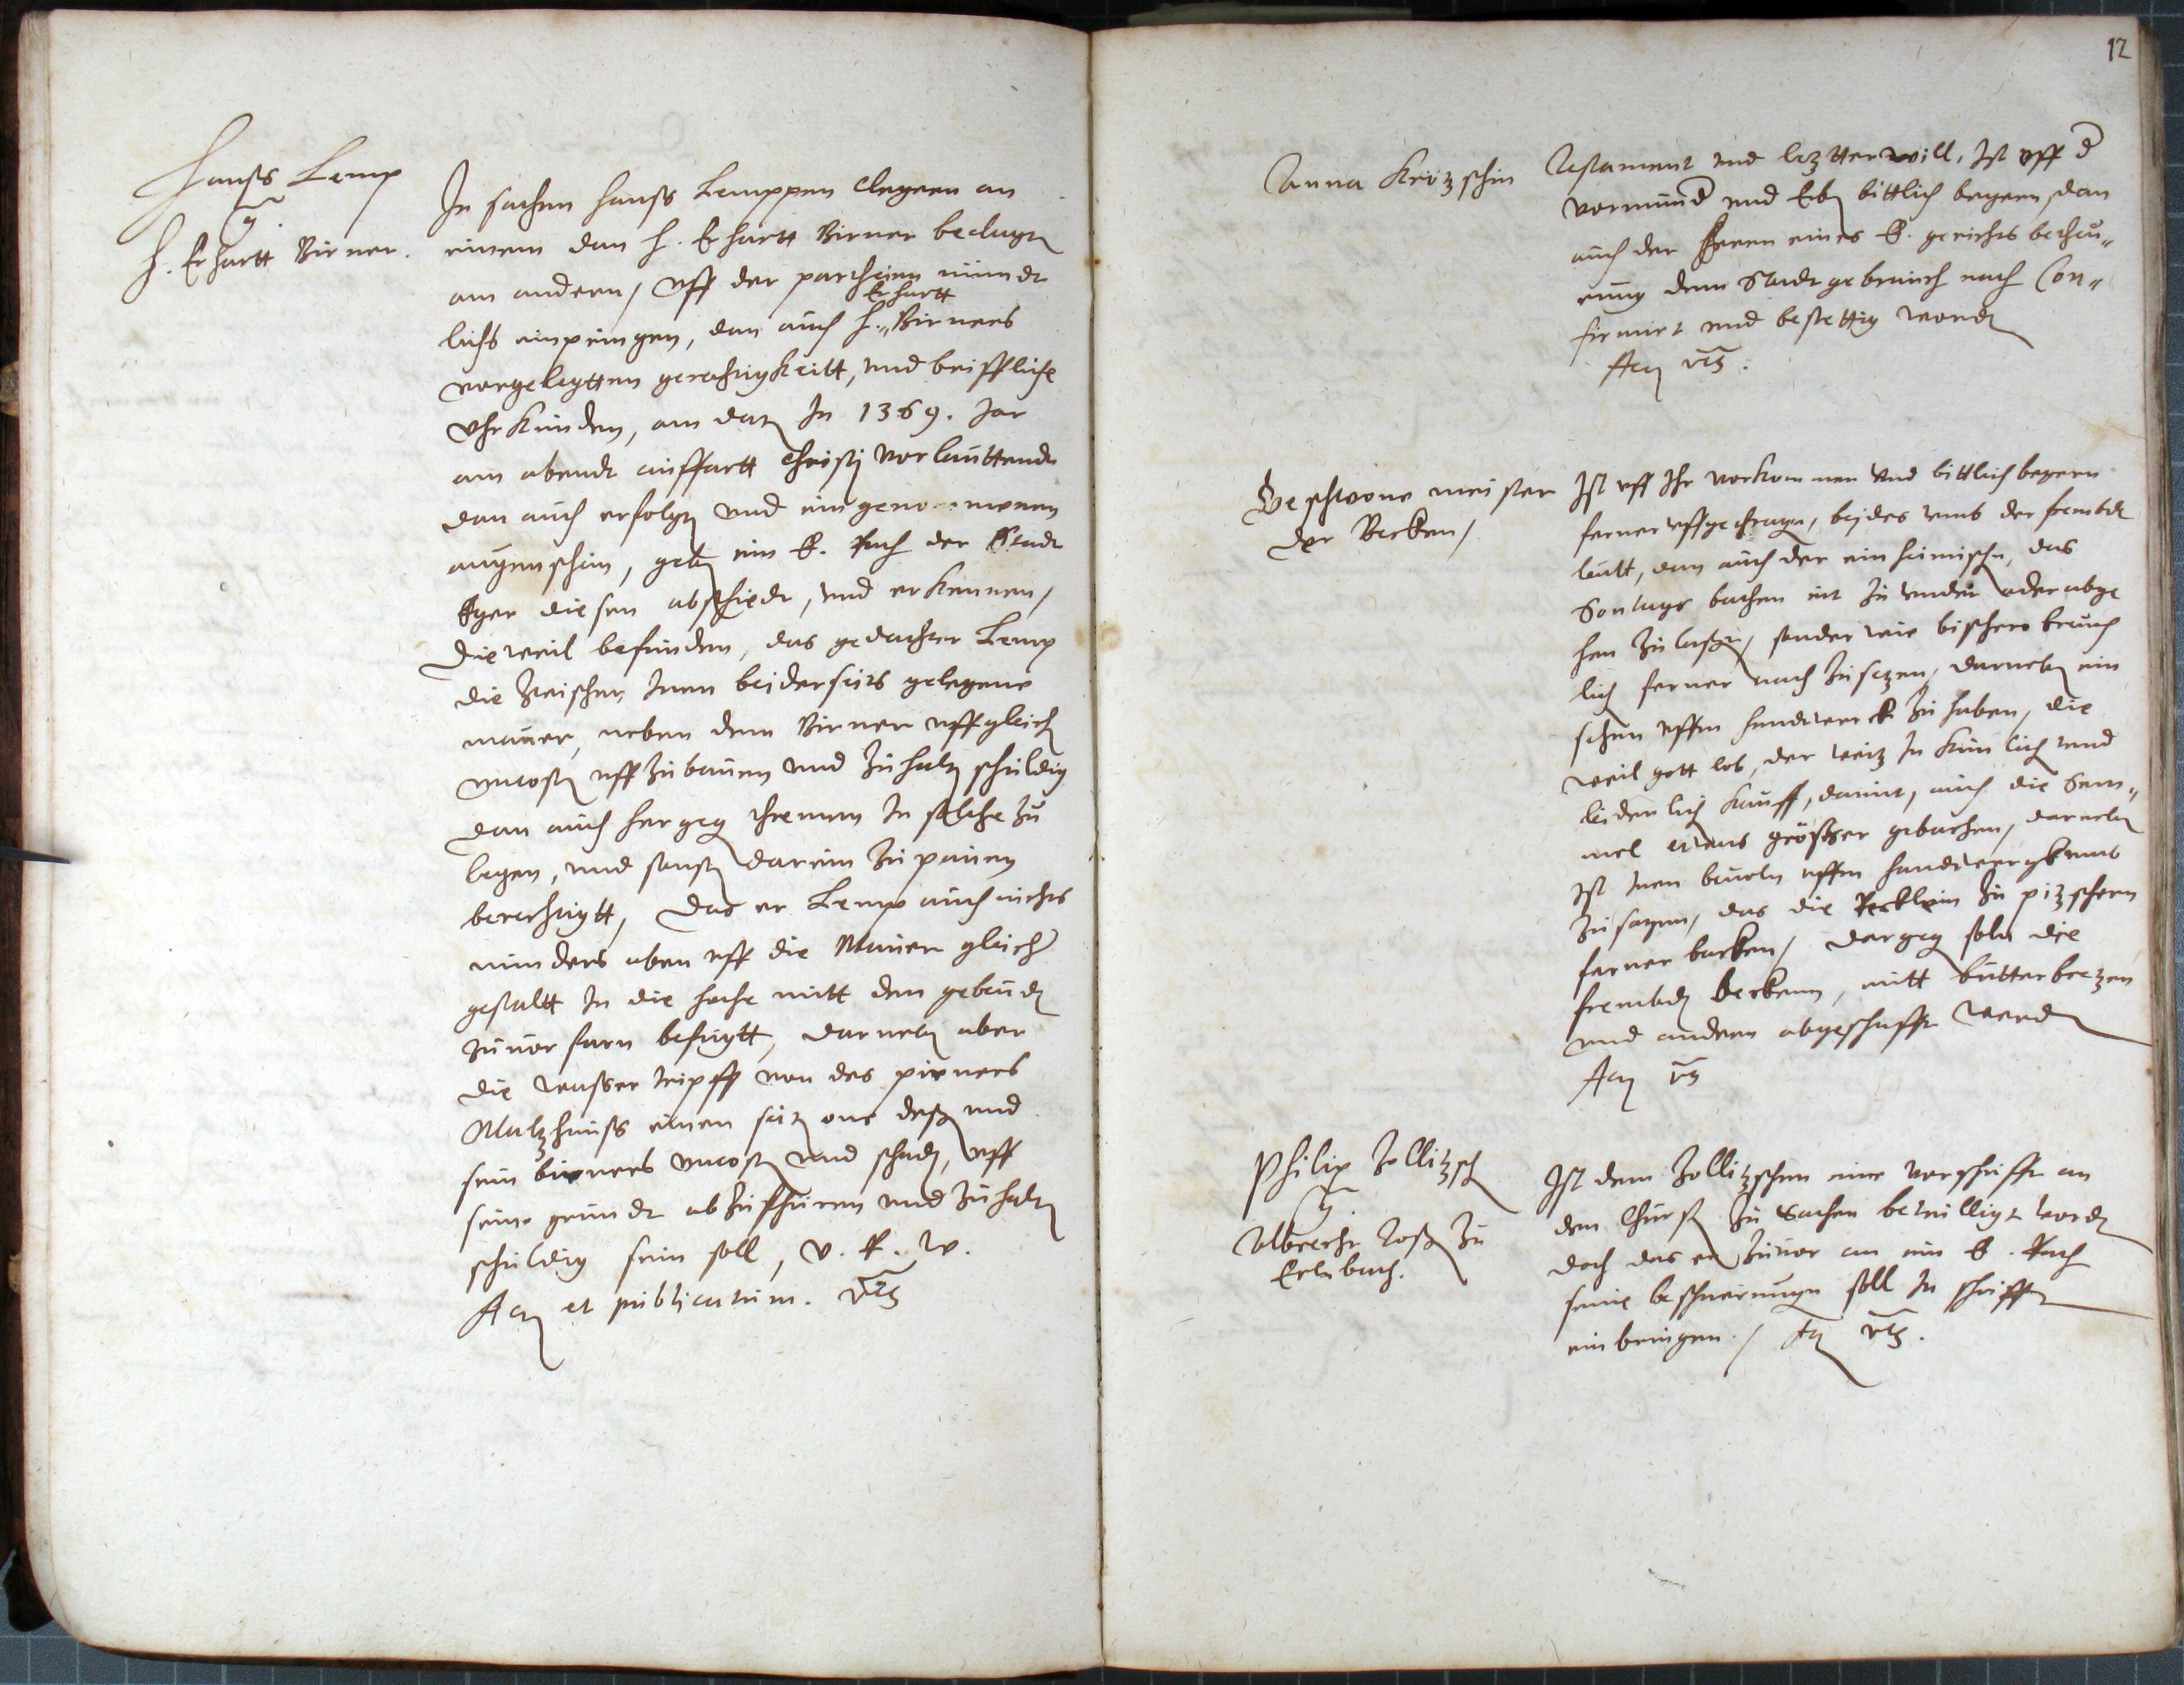 Hanss Lemp
H. Erhartt Birner.
In sachen Hanss Lemppen Clegern an
einem dan H. Erhartt Birner beclagt
am andern, Uff der partheien mündt
Erhartt
lichs einpringen, dan auch H. Birners
vorgelegtten gerechtigkeitt, und briffliche
Uhrkunden, am dat In 1369. Jar
am abendt auffartt Christi vorlauttendt
dan auch erfolgt und eingenommenen
augenschein, gebn ein E. Rath der Stadt
Eger diesen abschiedt, und erkennen,
Die weil befunden, das gedachter Lemp
die zwischen Inen beiderseits gelegene
mauer, neben dem Birner uff gleich
uncostn uff zubauen und zuhaltn schuldig
dan auch hergegn thremen In solche zu
legen, und sonst darein zu pauen
berechtigtt, Das er Lemp auch nichts
minders oben uff die Mauer gleicher
gestaltt In die Hohe mitt dem gebeude
zuuorfarn befugtt, darnebn aber
die wasser tripff von des pirners
Maltzhauss einen seit one dess und
sein birners uncostn und schadn, uff
sein grundt abzufhüren und zuhaltn
schuldig sein soll, V. R. W.
Act et publicatum. uts
12
Anna Kritzschin
Testament und letztter will, Ist uff d
vormund und Erbn bittlich begern, dan
auch der Herrn eines E. gerichts betheu„
rung dem Stadt gebrauch nach Con„
firmirt und bestettig wordn
Act uts:
Geschworne meister
der Becken,
Ist uff Ihr vorkommen Und bittlich begern
ferner uffgetragn, beides umb der frembdt
leutt, dan auch der einheimischn, das
Sontags bachen nit zu endern oder abge
hen zulassn, sonder wie bischero breuch
lich ferner nach zusetzen, darnebn ein
sehen uffm handtwerck zu haben, die
weil gott lob, der weitz In kun lich und
leidenlich kauff, damit, auch die Sem„
mel etwas grösser gebachen, darnebn
Ist Inen beuoln uffm handtwergk
zusagen, das die Recklein zu pitzschern
ferner backen, dargegn soln die
frembdn becken, mitt butterbretzen
und andern abgeschafft werdn
Act uts
Philip Zollitzsch
Albrecht Joss zu
Erlnbach.
Ist dem Zollitzschen eine vorschrifft an
den Churf zu Sachen bewilligt wordn
doch das er zuuor an ein E. Rath
seine beschwerungn soll In schrifftn
einbringen. / Act uts.